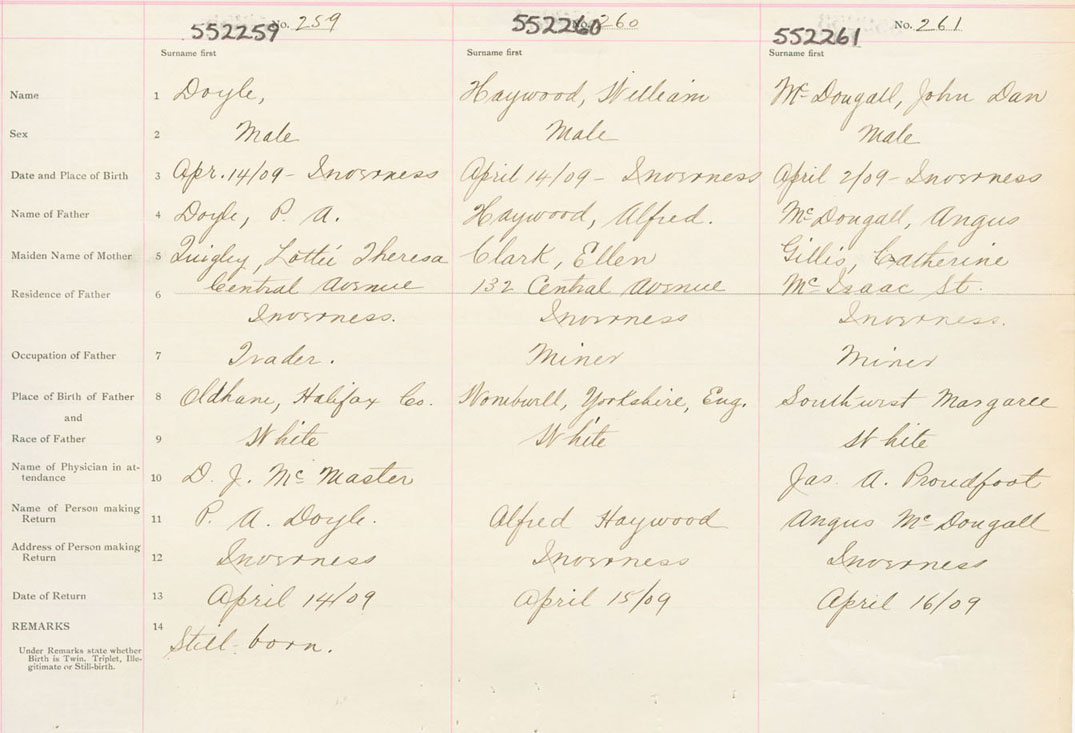 552259 No. 259 552260 No. 260 552261 No. 261
Surname first Surname first Surname first
Name 1 Doyle, Haywood, William McDougall, John Dan
Sex 2 Male Male Male
Date and Place of Birth 3 Apr. 14/09 - Inverness April 14/09 - Inverness April 2/09 - Inverness
Name of Father 4 Doyle, P. A. Haywood, Alfred. McDougall, Angus
Maiden Name of Mother 5 Quigley, Lottie Theresa Clark, Ellen Gillis, Catherine
Central Avenue 132 Central Avenue McIsaac St.
Residence of Father 6
Inverness. Inverness Inverness.
Occupation of Father 7 Trader. Miner Miner
Place of Birth of Father 8 Oldham, Halifax Co. Wombwell, Yorkshire, Eng. Southwest Margaree
and
Race of Father 9 White White White
Name of Physician in at-
tendance 10 D. J. McMaster Jas. A. Proudfoot
Name of Person making
Return 11 P. A. Doyle. Alfred Haywood Angus McDougall
Address of Person making
Return 12 Inverness Inverness Inverness
Date of Return 13 April 14/09 April 15/09 April 16/09
REMARKS 14 Still-born.
Under Remarks state whether
Birth is Twin, Triplet, Ille-
gitimate or Still-birth.